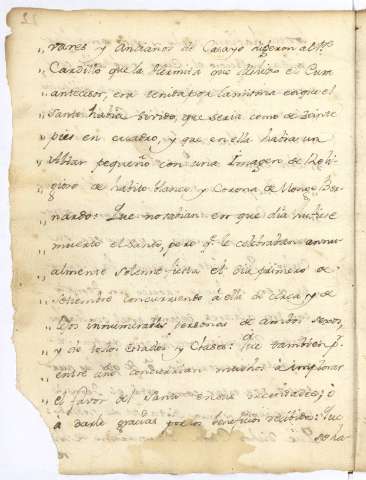 „ vares y Ancianos de Casayo dixeron al Mº
„ Cardillo que la Hermita que deshizo el Cura
„ antecesor, era tenida por la misma en que el
„ Santo habia vivido, que seria como de veinte
„ pies en cuadro, y que en ella habia un
„ Altar pequeño con una Imagen de Reli-
„ gioso de habito blanco y Corona de Monge Ber-
„ nardo: Que no sabian en que dia hubiese
„ muerto el Santo, pero q.e le celebraban annu-
„ almente solemne fiesta el dia primero de
„ Setiembre concurriendo à ella de cerca y de
„ lejos innumerables personas de ambos sexos,
„ y de todos Estados y Clases: Que tambien
entre año concurrian muchos à implorar
el favor del Santo en sus necesidades, ò
à darle gracias por los beneficios recibidos: Que
se ha